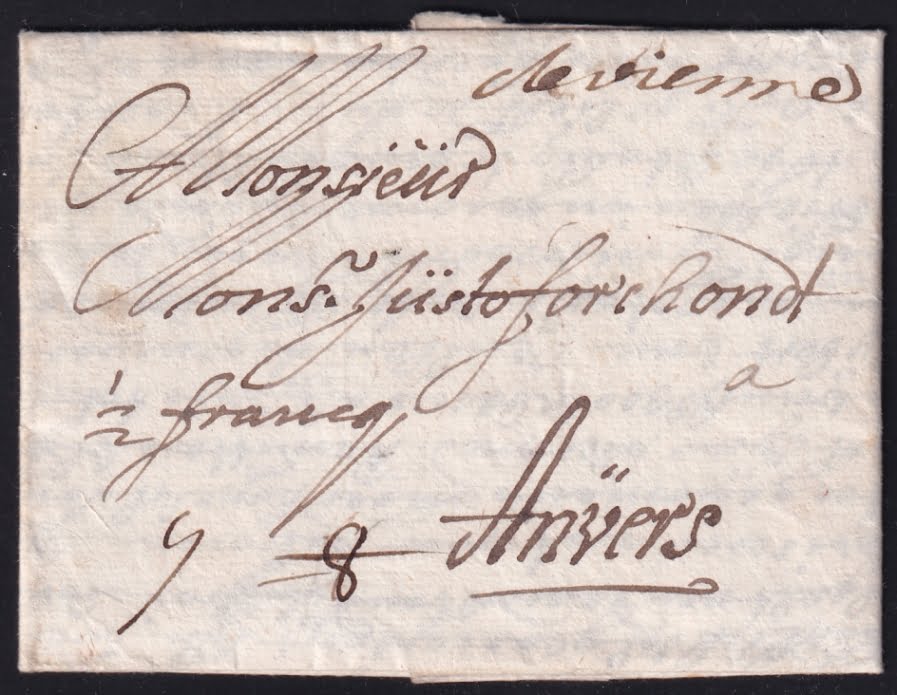 de vienne
A Monsieür
Mons.r Jüsto forchondt
a
1/2 francq
8 Anvers